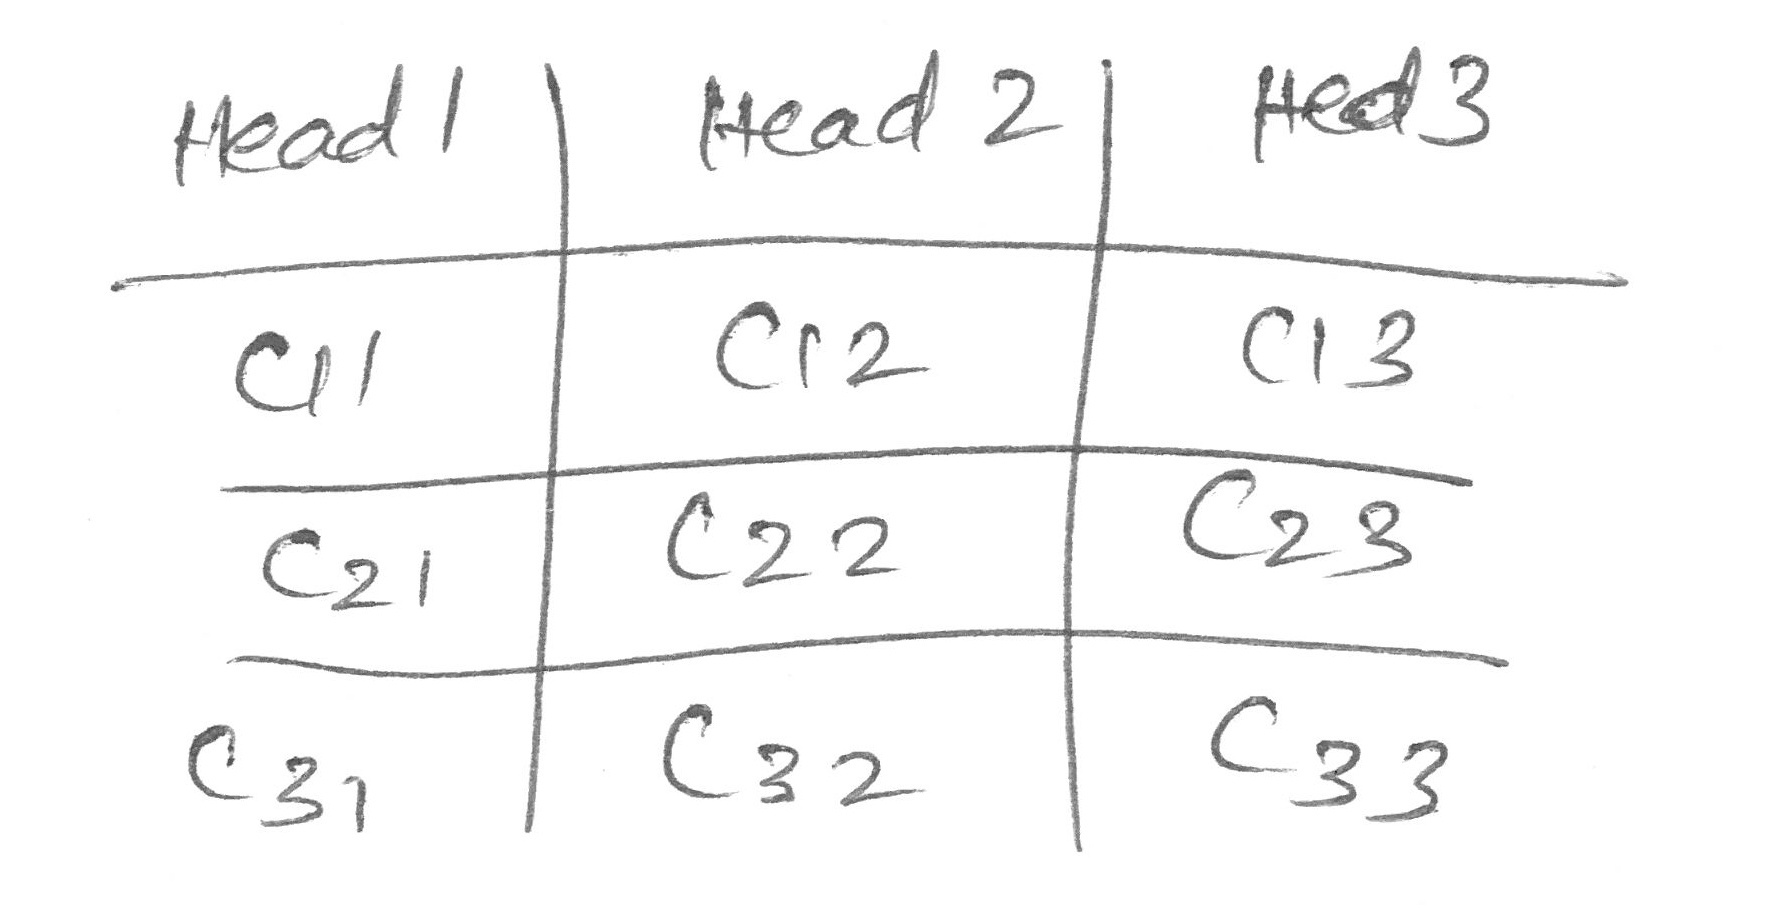 Head 1 Head 2 Hed 3
C11 C12 C13
C21 C22 C23
C31 C32 C33